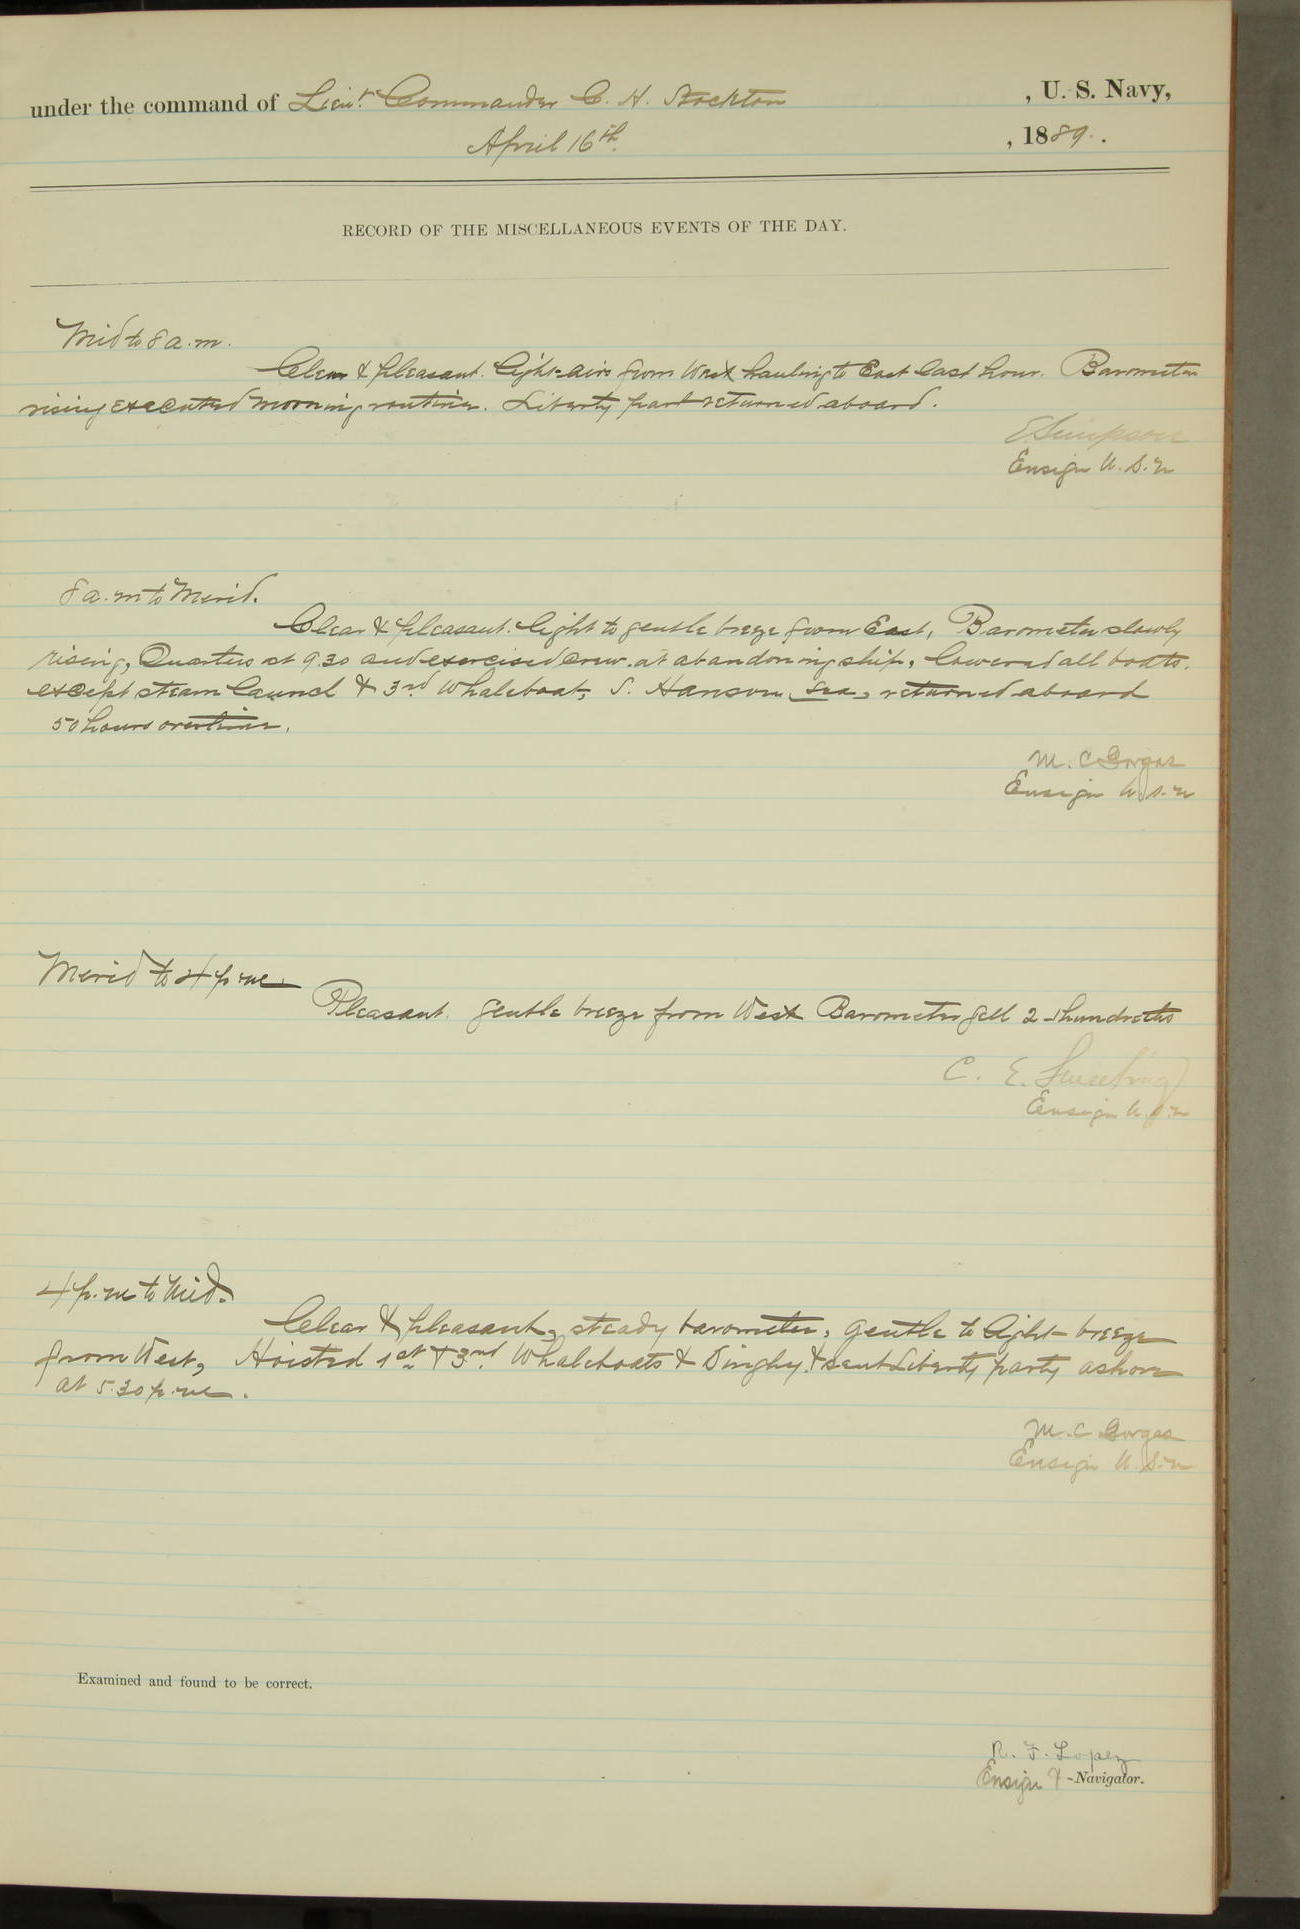 under the command of Lieut. Commander C. H. Stockton , U. S. Navy,
April 16th , 1889.
RECORD OF THE MISCELLANEOUS EVENTS OF THE DAY.
Mid to 8 a.m.
Clear & pleasant. Light airs from West hauling to East last hour. Barometer
rising executed morning routine. Liberty part returned aboard.
E Simpson
Ensign U.S.N
8 a.m to Merid.
Clear & pleasant. Light to gentle breeze from East, Barometer slowly
rising, Quarters at 9.30 and exercised crew at abandoning ship, lowered all boats.
except steam launch & 3rd Whaleboat, S. Hanson sea, returned aboard
50 hours overtime.
M. C Gorgas
Ensign U.S.N
Merid to 4 p.m.
Pleasant. Gentle breeze from West Barometer fell 2 hundreths
C. E.
Ensign U.S.N
4 p.m to Mid.
Clear & pleasant, steady barometer, gentle to light breeze
from West, Hoisted 1st & 3rd Whaleboats & Dinghy. & sent Liberty party ashore
at 5.30 p.m.
M. C Gorgas
Ensign U.S.N
Examined and found to be correct.
R. F. Lopez
Ensign & -Navigator.